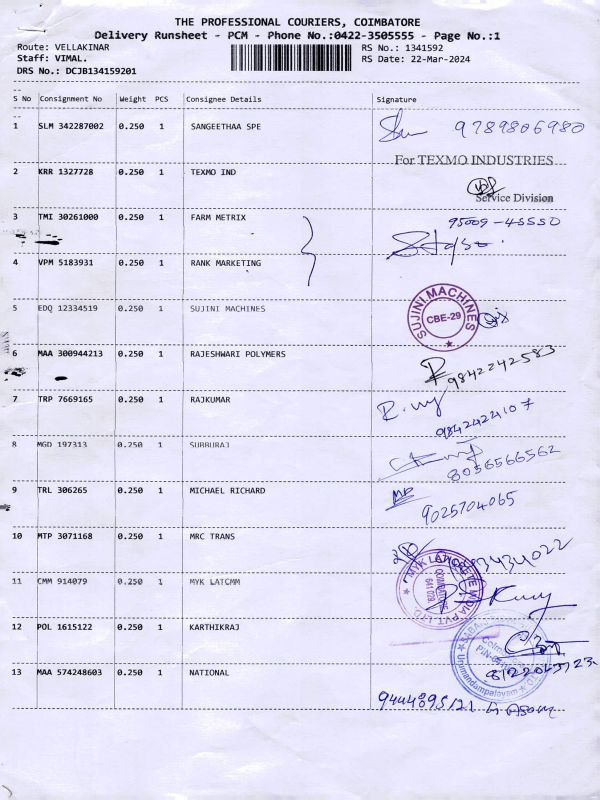 THE PROFESSIONAL COURIERS, COIMBATORE
Delivery Runsheet - PCM - Phone No.:0422-3505555 - Page No.:1
Route: VELLAKINAR RS No.: 1341592
Staff: VIMAL. RS Date: 22-Mar-2024
DRS No.: DCJB134159201
S No Consignment No Weight PCS Consignee Details Signature
1 SLM 342287002 0.250 1 SANGEETHAA SPE 9789806980
For TEXMO INDUSTRIES
2 KRR 1327728 0.250 1 TEXMO IND
Service Division
3 TMI 30261000 0.250 1 FARM METRIX 95009-45550
4 VPM 5183931 0.250 1 RANK MARKETING
5 EDQ 12334519 0.250 1 SUJINI MACHINES SUJINI MACHINES CBE-29
6 MAA 300944213 0.250 1 RAJESHWARI POLYMERS 9842242583
7 TRP 7669165 0.250 1 RAJKUMAR 9842424107
8 MGD 197313 0.250 1 SUBBURAJ 8056566562
9 TRL 306265 0.250 1 MICHAEL RICHARD 9025704065
10 MTP 3071168 0.250 1 MRC TRANS
11 CMM 914079 0.250 1 MYK LATCMM COIMBATORE 641 029
12 POL 1615122 0.250 1 KARTHIKRAJ
13 MAA 574248603 0.250 1 NATIONAL
9444895121